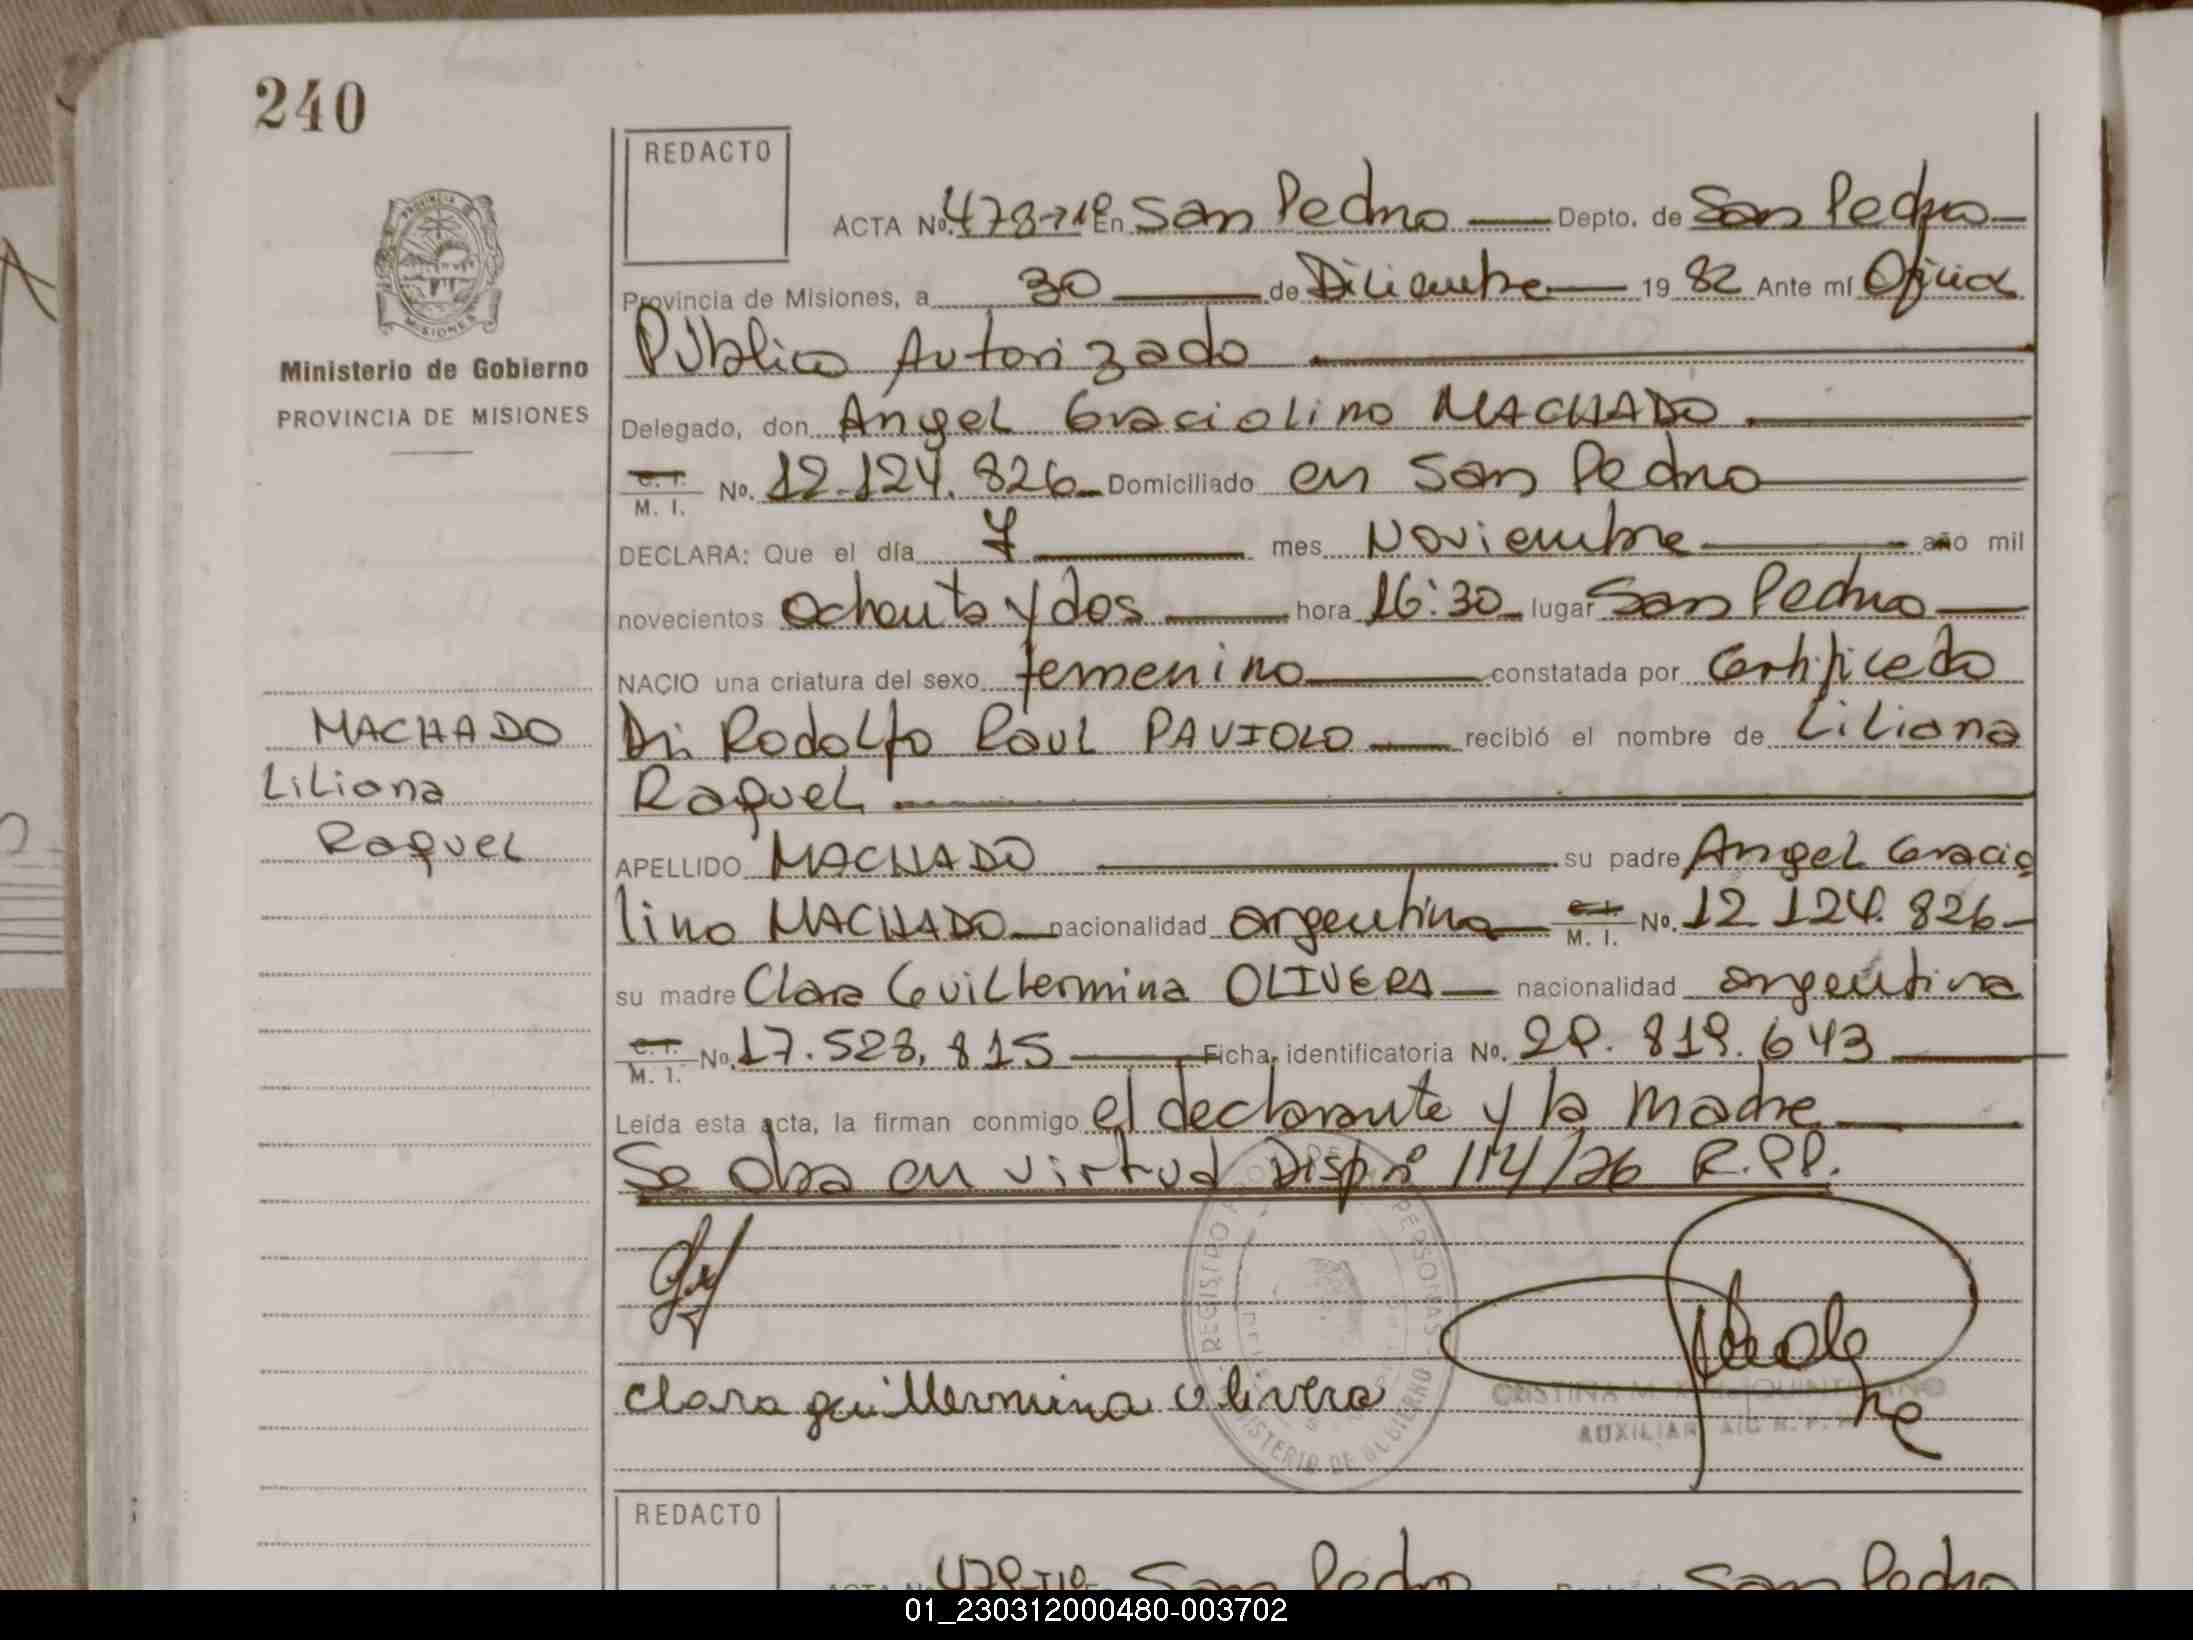 240
REDACTO
ACTA No. 478-T1º En San Pedro Depto. de San Pedro
Provincia de Misiones, a 30 de Diciembre 1982 Ante mí Oficial
Público Autorizado
Ministerio de Gobierno
PROVINCIA DE MISIONES
Delegado, don Angel Graciolino MACHADO
C. I. M. I. No. 12.124.826 Domiciliado en San Pedro
DECLARA: Que el día 7 mes Noviembre año mil
novecientos ochenta y dos hora 16:30 lugar San Pedro
NACIO una criatura del sexo femenino constatada por Certificado
MACHADO
Liliana
Raquel
Dr. Rodolfo Raul PAVIOLO recibió el nombre de Liliana
Raquel
APELLIDO MACHADO su padre Angel Gracio
lino MACHADO nacionalidad argentina C. I. M. I. No. 12 124. 826
su madre Clara Guillermina OLIVERA nacionalidad argentina
C. I. M. I. No. 17.528.815 Ficha identificatoria No. 29.819.643
Leída esta acta, la firman conmigo el declarante y la madre
Se obra en virtud Disp nº 114/76 R.PP.
REGISTRO PERSONAS
MINISTERIO DE GOBIERNO
clara guillermina olivera
CRISTINA M. QUINTILIANO
AUXILIAR
REDACTO
ACTA No. 479-T1º En San Pedro San Pedro
01_230312000480-003702